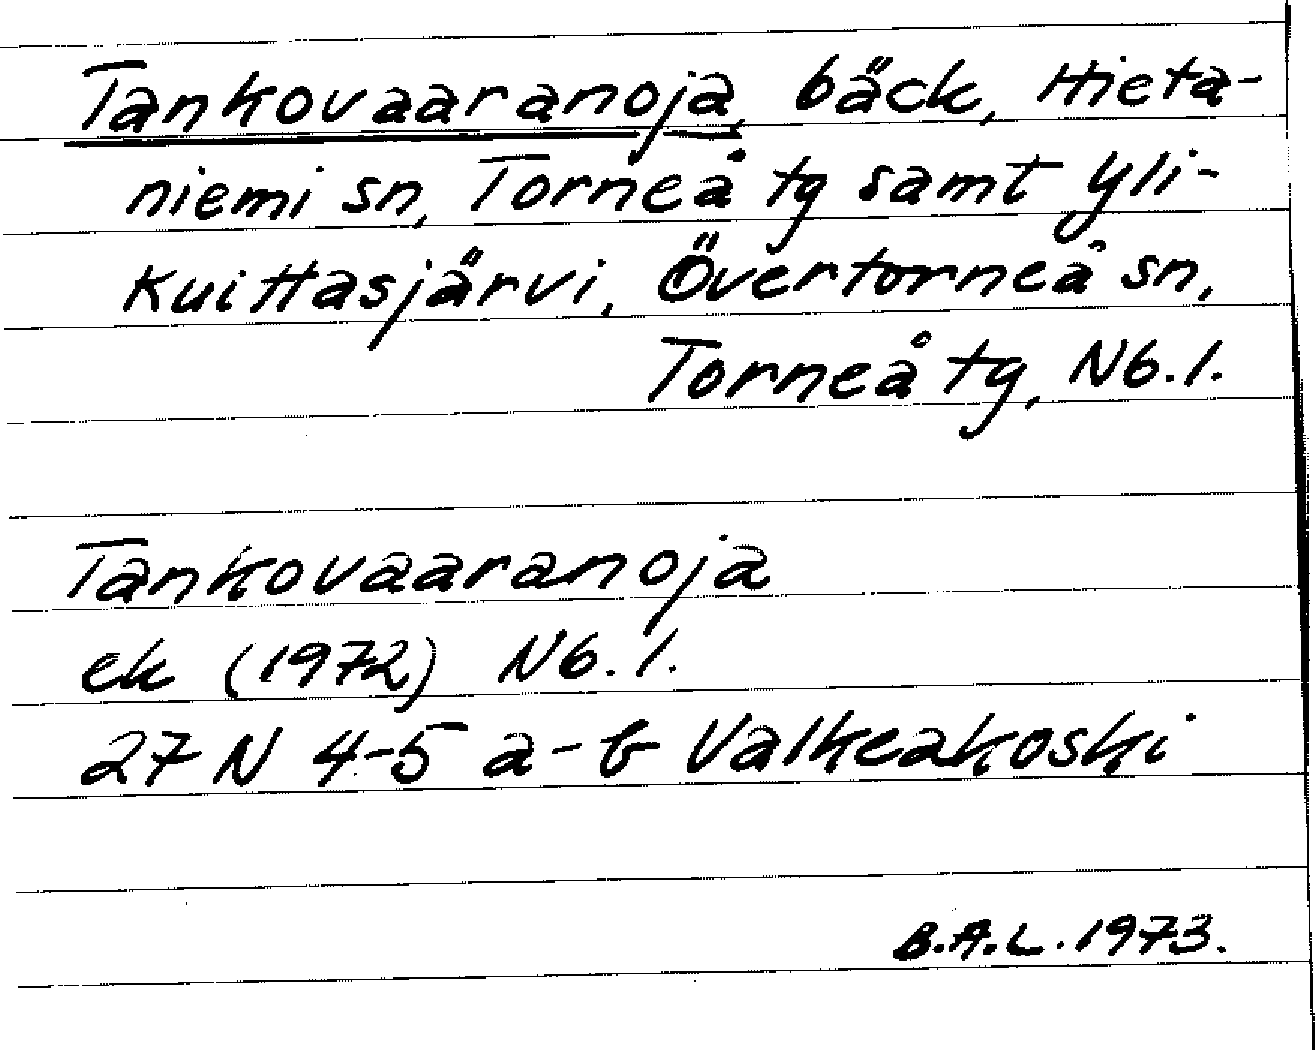 Tankovaaranoja, bäck, Hieta-
niemi sn, Torneå tg samt Yli-
Kuittasjärvi, Övertorneå sn,
Torneå tg, N6.1.
Tankovaaranoja
ek (1972) N6.1.
27 N 4-5 a-b Valkeakoski
B.A.L. 1973.